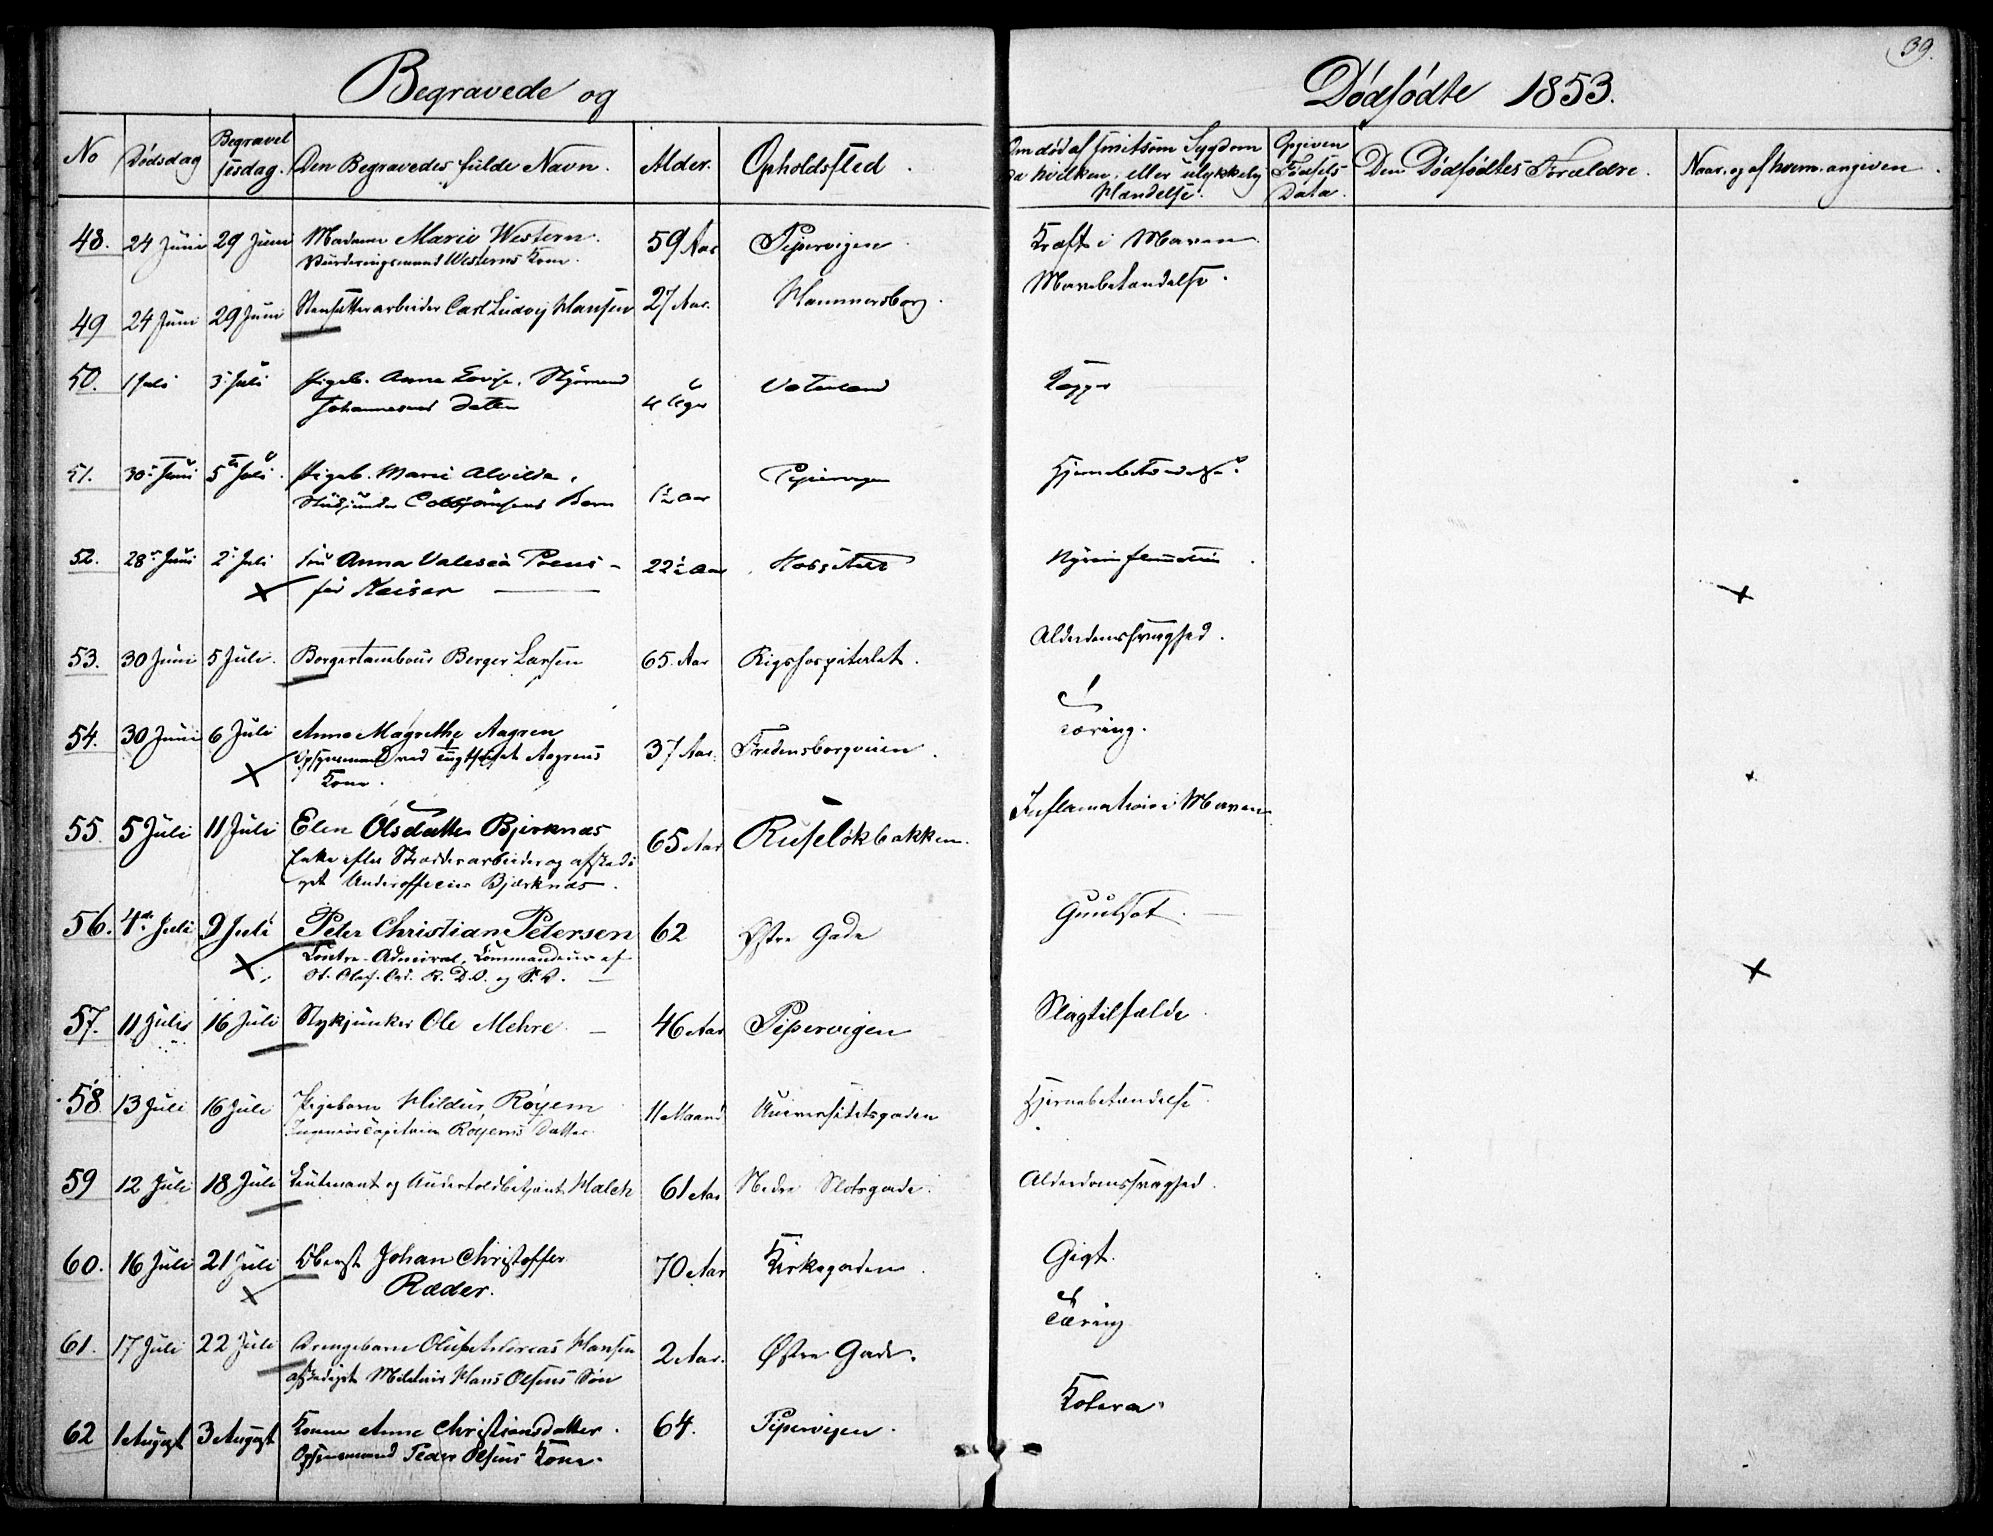 39.
Begravede og Dødfødte 1853.
No Dødsdag Begravelsesdag. Den Begravedes fulde Navn. Alder. Opholdssted. Om død af smitsom Sygdom og hvilken, eller ulykkelig Hændelse. Opgiven Fødsels-Data. Den Dødfødtes Forældre. Naar og af hvem angiven.
48. 24 Juni 29 Juni Madame Marie Western. 59 Aar Pipervigen Kræft i Maven
Vurderingsmand Westerns Kone.
49 24 Juni 29 Juni Stensætterarbeider Carl Ludvig Hansen 27 Aar. Hammersborg. Mavebetændelse.
50. 1 Juli 3 Juli Pigeb. Anna Lovise, 4 Uger Vaterland
Johannesens Datter
51. 30 Juni 5 Juli Pigeb. Marie Alvilde, 1½ Aar Pipervigen Hjernebetændelse.
Børn
52. 28 Juni 2 Juli Fru Anna Valesca 22½ Aar
før Kaiser
53. 30 Juni 5 Juli. Borgertambour Berger Larsen 65 Aar Rigshospitalet. Alderdomssvaghed.
54. 30 Juni 6 Juli Anne Magrethe Aagren 37 Aar. Fredensborgveien Tæring.
Opsynsmand ved Tugthuset Aagrens
Kone.
55. 5 Juli 11 Juli Elen Olsdatter Bjerknæs 65 Aar Ruseløkbakken. Inflamation i Maven
Enke efter Skrædderarbeider og afskedi-
get Underofficier Bjerknæs.
56. 4de Juli 9 Juli Peter Christian Petersen 62 Østre Gade Guulsot.
Contre-Admiral, Commandeur af
St. Olafs Ord. R. D. O. og S. O.
57. 11 Juli 16 Juli Stykjunker Ole Mehre 46 Aar Pipervigen Slagtilfælde
58 13 Juli 16 Juli Pigebarn Hildur, Røyem 11 Maand Universitetsgaden Hjernebetændelse.
Ingeniørcapitain Røyems Datter
59 12 Juli 18 Juli Lieutenant og Undertoldbetjent Walch 61 Aar Nedre Slotsgade. Alderdomssvaghed.
60. 16 Juli 21 Juli Oberst Johan Christoffer 70 Aar Kirkegaden Gigt.
Ræder.
61. 17 Juli 22 Juli Drengebarn Hansen 2 Aar. Østre Gade. Tæring
afskediget Militair Hans Olsens Søn
62 1 August 3 August Konen Anne Christiansdatter. 64. Pipervigen. Kolera.
Opsynsmand Peder Olsens Kone.